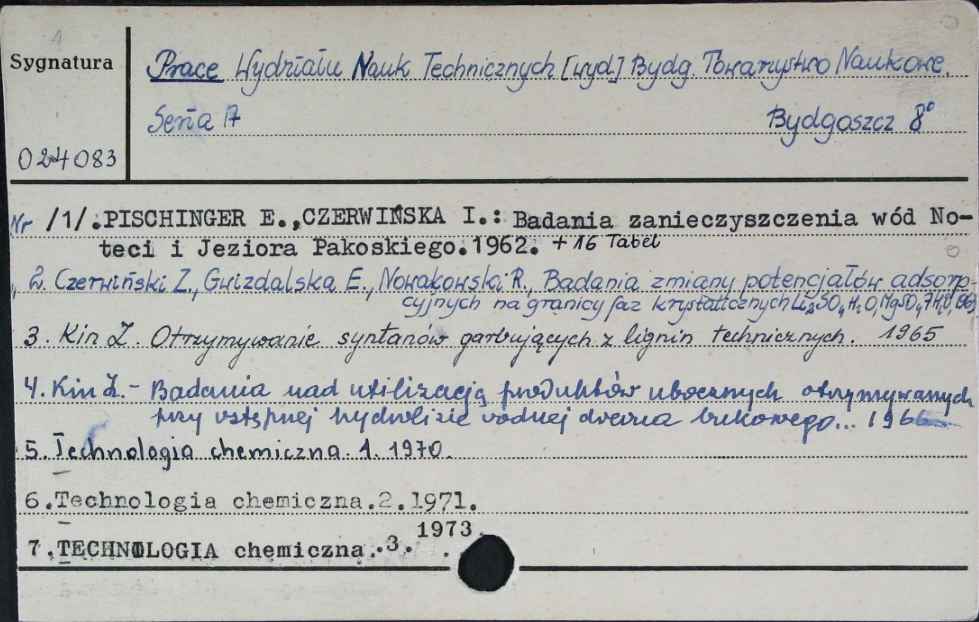 Sygnatura
Prace Wydziału Nauk Technicznych [wyd] Bydg. Towarzystwo Naukowe.
Seria A Bydgoszcz 8°
024083
Nr /1/.PISCHINGER E.,CZERWIŃSKA I.: Badania zanieczyszczenia wód No-
teci i Jeziora Pakoskiego.1962. + 16 Tabel
2. Czerwiński Z., Gwizdalska E., Nowakowski R., Badania zmiany potencjałów adsorp-
cyjnych na granicy faz krystalicznych Li2SO4 H2O, MgSO4 7H2O,
3. Kin Z. Otrzymywanie syntanów garbujących z lignin technicznych. 1965
4. Kin Z. - Badania nad utilizacją produktów ubocznych otrzymywanych
przy wstępnej hydrolizie wodnej drewna bukowego... 1966
5. Technologia chemiczna. 1. 1970.
6.Technologia chemiczna.2.1971.
7.TECHNOLOGIA chemiczna.3. 1973.